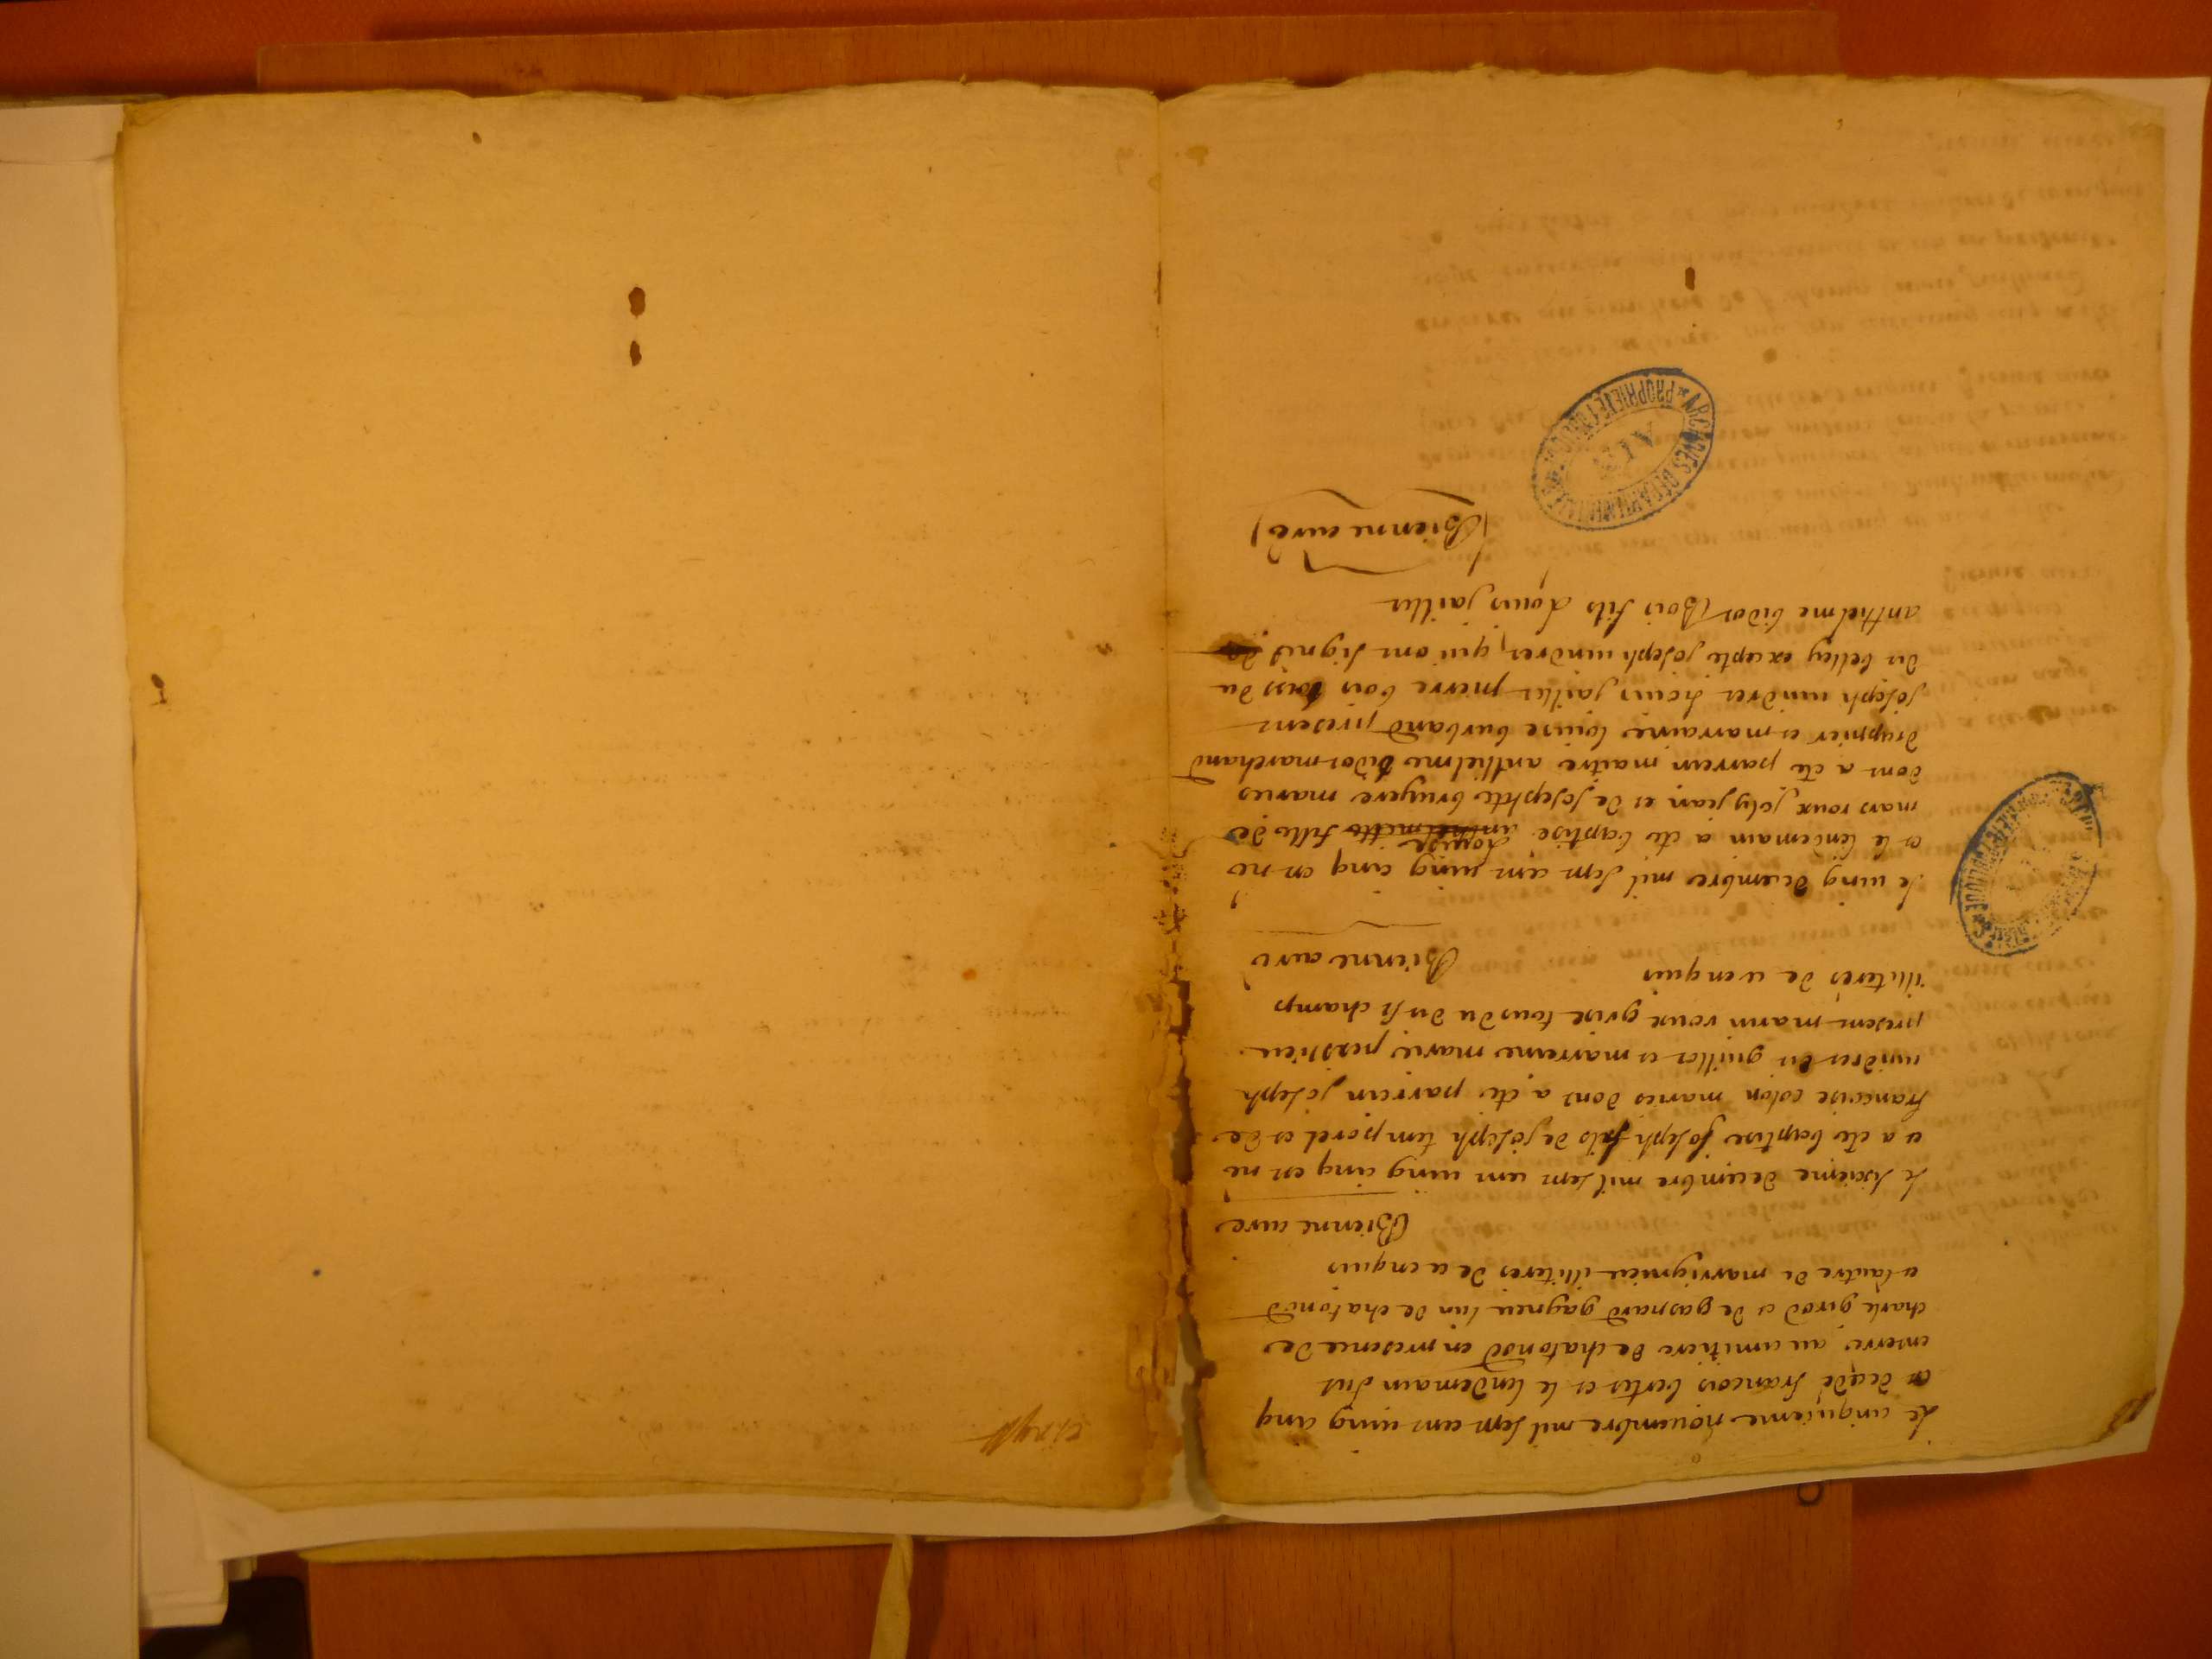 Le cinquieme novembre mil sept cent ving cinq
est decedé francois bertet et le lendemain dut
enterré au cimitiere de chatonod en presence de
charle girod et de gaspard gagneu lun de chatonod
et lautre de marrignieu illiteres de ce enquis
Bienne curé
Le sixieme decembre mil sept cent ving cinq est né
et a été baptise joseph fils de joseph temporel et de
francoise colon mariés dont a été parrain joseph
vindret du guillot et marrenne marie
present marin roux grise tous du dit st champ
illiterés de ce enquis
Bienne curé
Le ving decembre mil sept cent ving cinq est né
et le lendemain a été baptisé Louise anthelmette fille de
mars roux joly jean et de josephte bruyere mariés
dont a été parrain maitre anthelme bidot marchand
drappier et marraine louise burband present
joseph vindret Louis jaillet pierre bois tous du
dit belley excepté joseph vindret qui ont signés
anthelme bidot Bois fils Louis jaillet
Bienne curé
ARCHIVES DEPARTEMENTALES
PROPRIETE PUBLIQUE
AIN
PROPRIETE PUBLIQUE